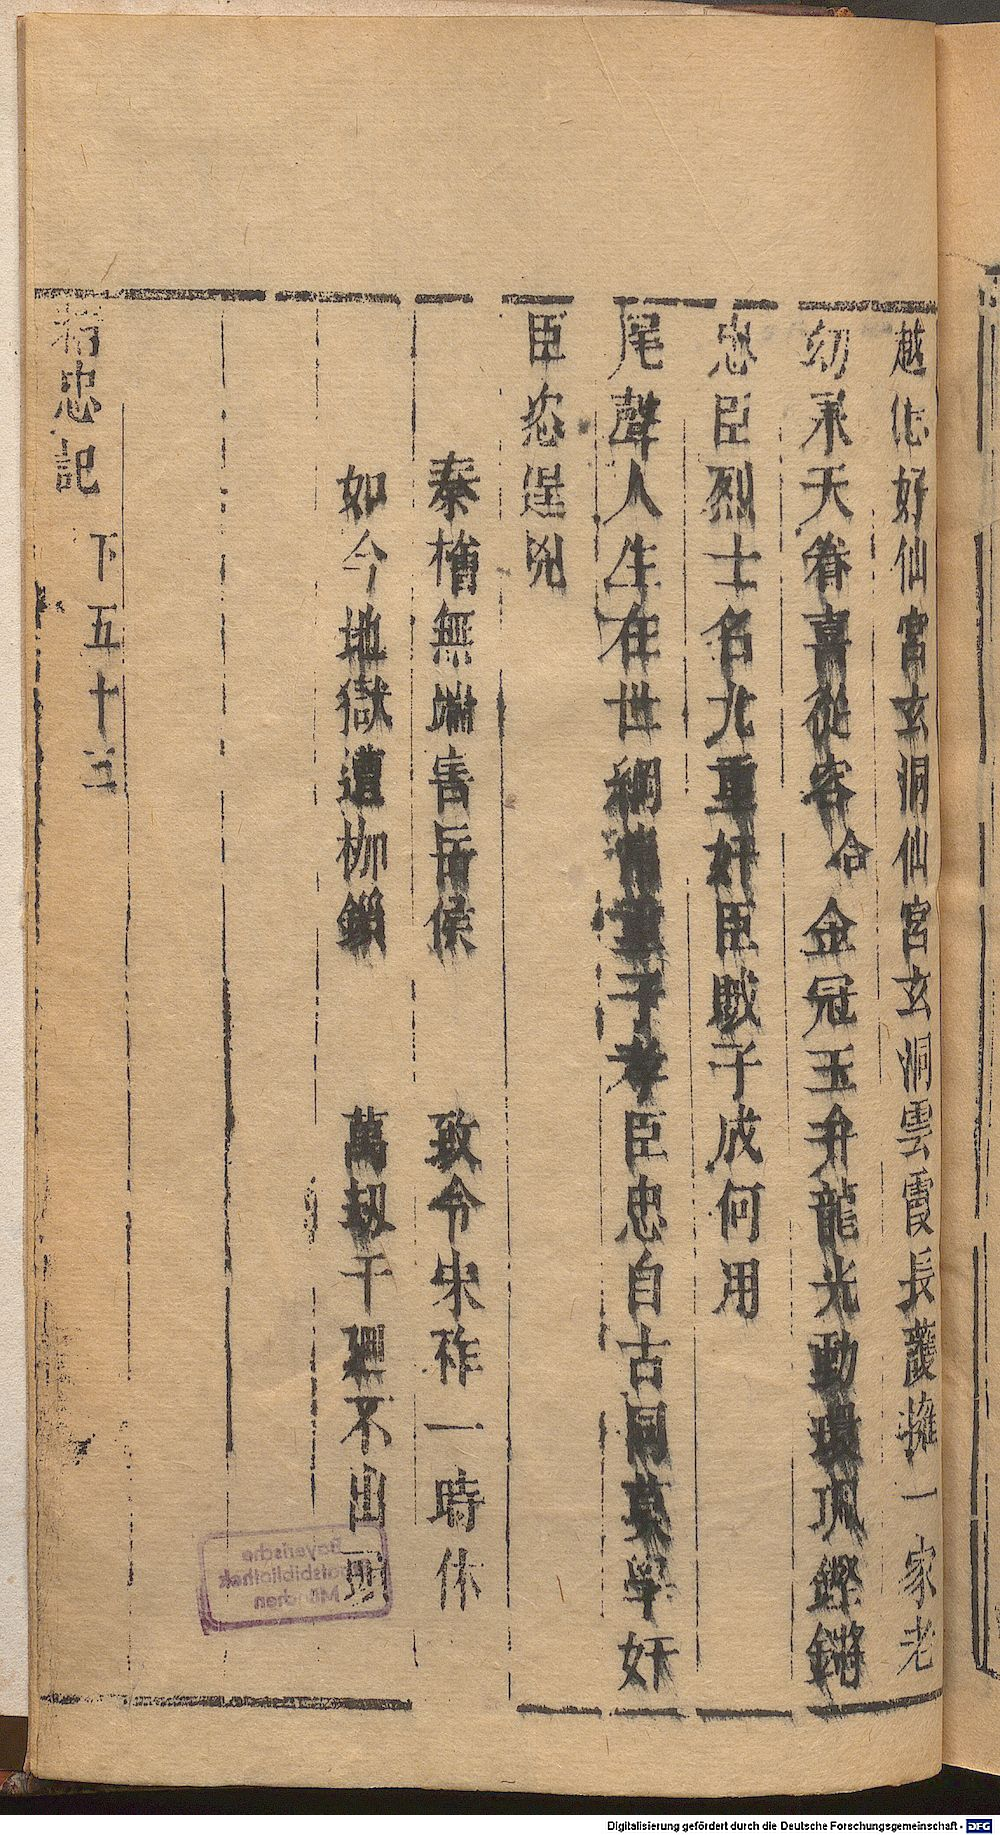 越佐好仙宮玄洞仙宮玄洞雲霞長護擁一家老
幼承天眷喜從容合金冠玉弁龍光動環珮鏗鏘
忠臣烈士名九重奸臣賊子成何用
尾聲人生在世綱常重子孝臣忠自古同莫學奸
臣恣逞兇
秦檜無端害岳侯 致令宋祚一時休
如今地獄遭枷鎖 萬刼千廻不出頭
精忠記 下五十三
Bayerische
Staatsbibliothek
München
Digitalisierung gefördert durch die Deutsche Forschungsgemeinschaft - DFG